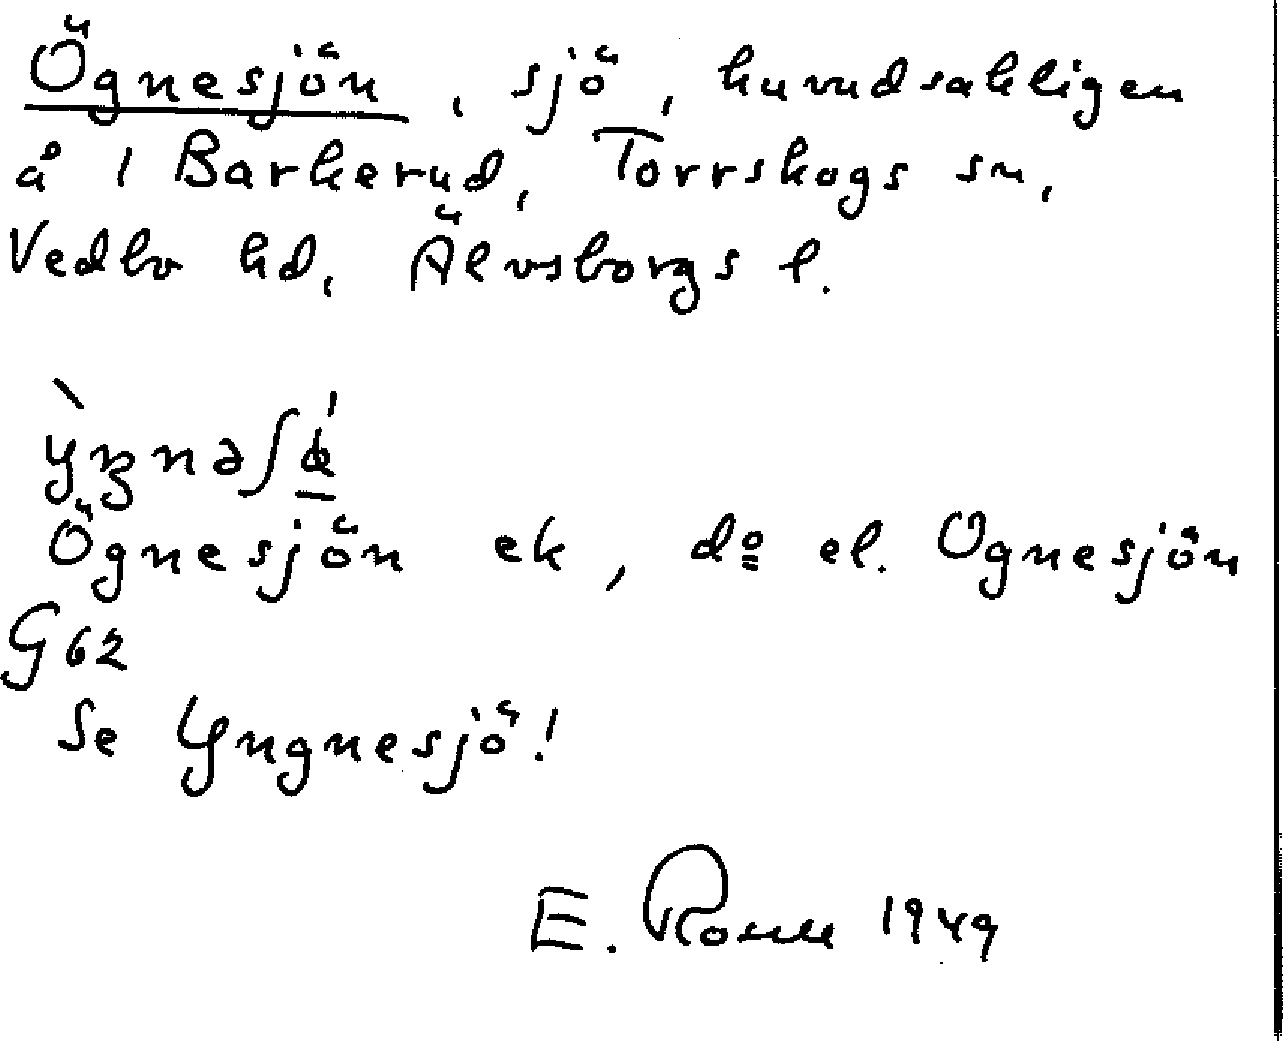 Ögnesjön, sjö, huvudsakligen
å 1 Barkerud, Torrskogs sn,
Vedbo hd, Älvsborgs l.
Ögnesjön ek, dº el. Ognesjön
G 62
Se Yngnesjö!
E. 1949